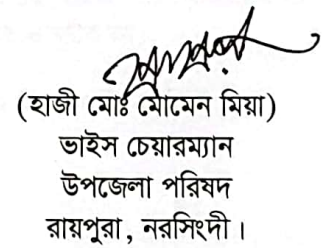 (হাজী মোঃ মোমেন মিয়া)
ভাইস চেয়ারম্যান
উপজেলা পরিষদ
রায়পুরা, নরসিংদী।